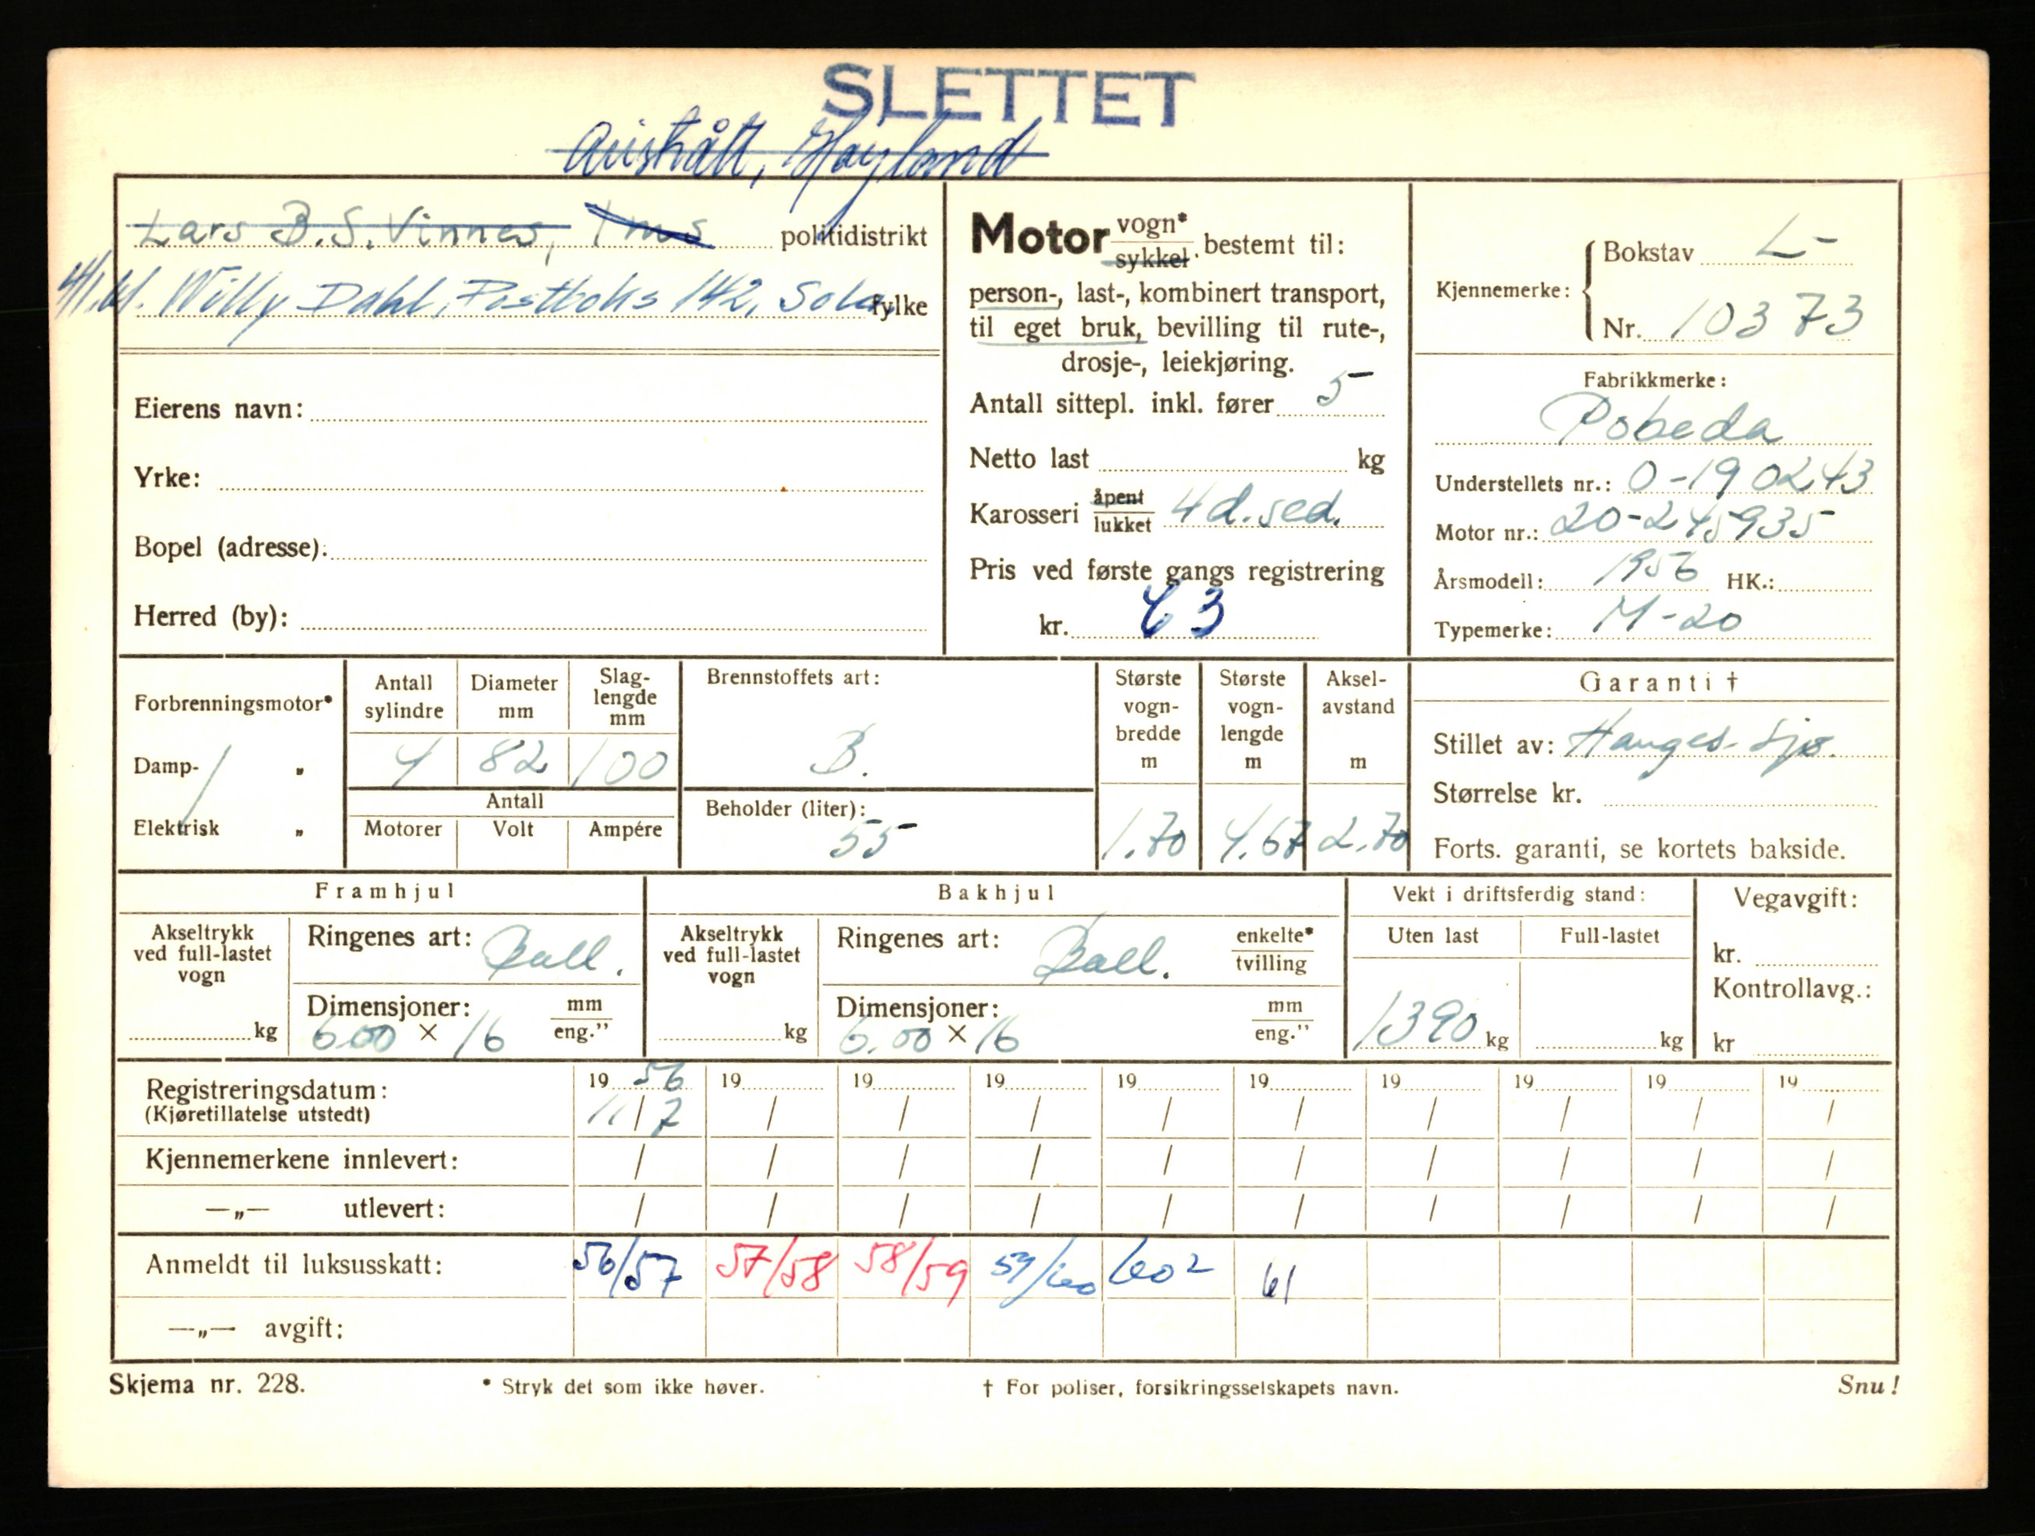 SLETTET
Austrått, Høyland
Lars B.S. Vinnes, Ims politidistrikt
Willy Dahl, Postboks 142, Sola. fylke
Eierens navn:
Yrke:
Bopel (adresse):
Herred (by):
Motor vogn* sykkel. bestemt til:
person-, last-, kombinert transport,
til eget bruk, bevilling til rute-,
drosje-, leiekjøring.
Antall sittepl. inkl. fører 5
Netto last kg
Karosseri åpent lukket 4d. sed.
Pris ved første gangs registrering
kr. 63
Kjennemerke: Bokstav L-
Nr. 10373
Fabrikkmerke:
Pobeda
Understellets nr.: 0-190243
Motor nr.: 20-245935
Årsmodell: 1956 HK.:
Typemerke: M-20
Forbrenningsmotor*
Damp- „
Elektrisk „
Antall sylindre
4
Diameter mm
82
Slag-lengde mm
100
Antall
Motorer Volt Ampére
Brennstoffets art:
B.
Beholder (liter):
55
Største vogn-bredde m
1.70
Største vogn-lengde m
4.67
Aksel-avstand m
2.70
Garanti †
Stillet av: Hauges. Sjø.
Størrelse kr.
Forts. garanti, se kortets bakside.
Framhjul
Akseltrykk ved full-lastet vogn
kg
Ringenes art: Ball.
Dimensjoner: mm
6.00 × 16 eng."
Bakhjul
Akseltrykk ved full-lastet vogn
kg
Ringenes art: Ball. enkelte* tvilling
Dimensjoner: mm
6.00 × 16 eng."
Vekt i driftsferdig stand:
Uten last Full-lastet
1390 kg kg
Vegavgift:
kr.
Kontrollavg.:
kr
Registreringsdatum: 19 56 19 19 19 19 19 19 19 19 19
(Kjøretillatelse utstedt) 11/7 / / / / / / / / /
Kjennemerkene innlevert: / / / / / / / / / /
—„— utlevert: / / / / / / / / / /
Anmeldt til luksusskatt: 56/57 57/58 58/59 59/60 60² 61
—„— avgift:
Skjema nr. 228. * Stryk det som ikke høver. † For poliser, forsikringsselskapets navn. Snu!